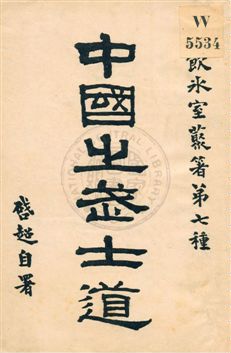 W
5534
飲冰室叢著第七種
中國之武士道
啓超自署
NATIONAL CENTRAL LIBRARY